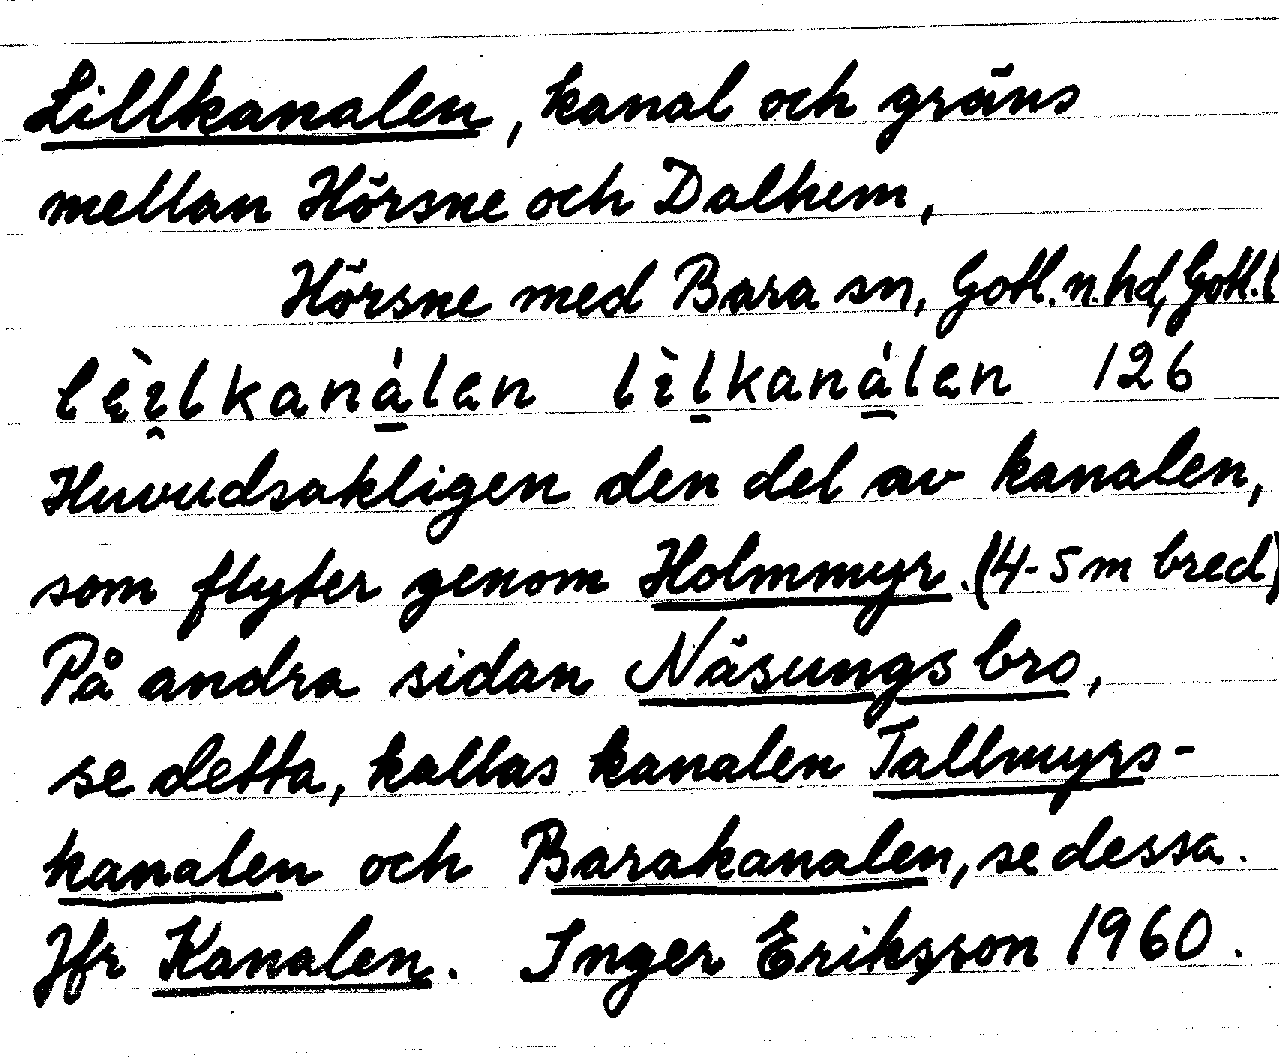 Lillkanalen, kanal och gräns
mellan Hörsne och Dalhem,
Hörsne med Bara sn, Gotl. n. hd, Gotl. l
126
Huvudsakligen den del av kanalen,
som flyter genom Holmmyr. (4-5 m bred)
På andra sidan Näsungsbro,
se detta, kallas kanalen Tallmyrs-
kanalen och Barakanalen, se dessa.
Jfr Kanalen. Inger Eriksson 1960.